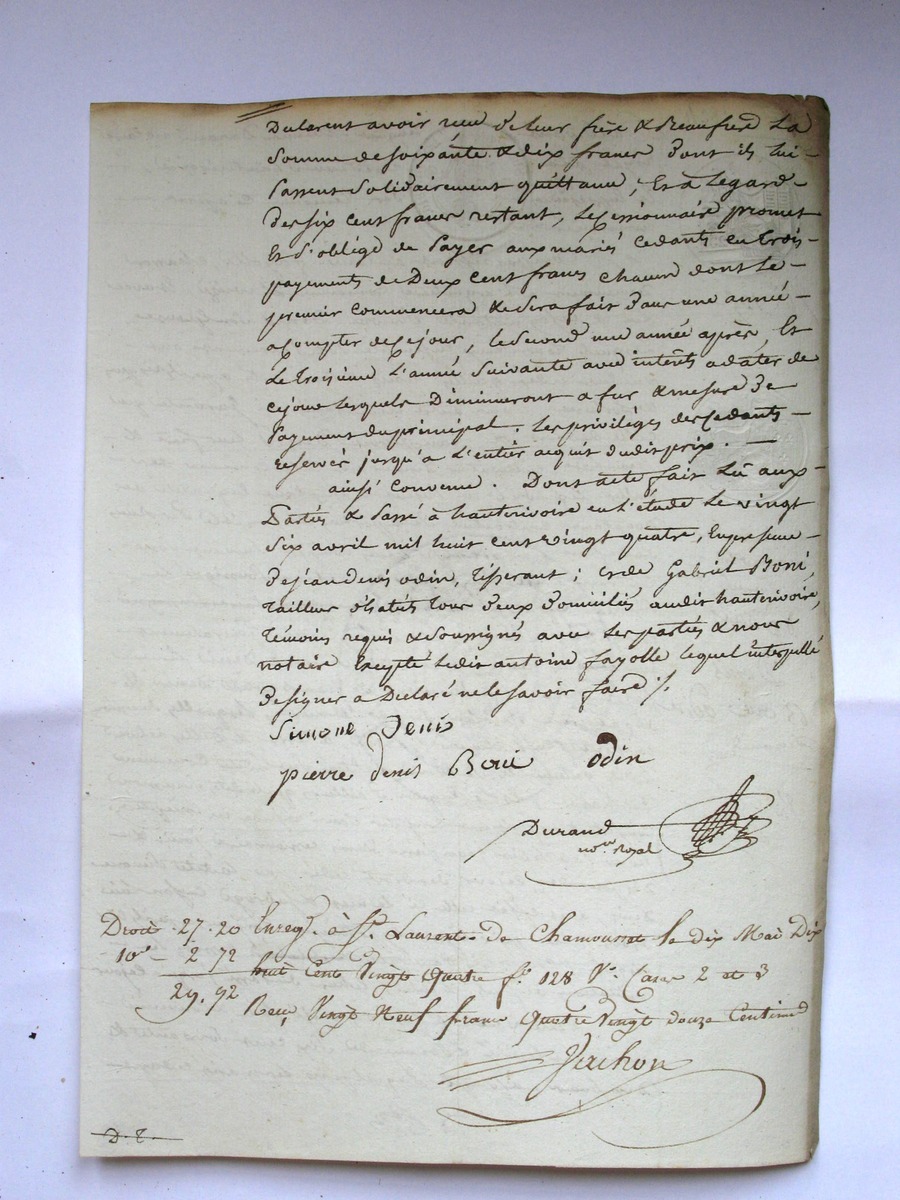 Declarent avoir recu de leur frère & Beaufrere La
Somme de soixánte & dix francs dont ils lui
passent Solidairement quittance, Et a Legard
des six cent francs restant, le Cessionnaire promet
Et S'obligé de payer aux mariés cedants en trois
payements de Deux cent francs chacun dont Le
premier commencera & sera fait dans une année
a Compter de ce jour, le second une année après, Et
Le troisieme L'année suivante avec intérêts a dater de
ce jour lesquels Diminueront a fur & mesure De
payement du principal. Les priviléges des Cedants
reservés jusqu'a L'entier acquit dudit prix.
ainsi convenu. Dont acte fait Lû aux
Parties & Passé à hauterivoire en L'étude Le vingt
Six avril mil huit cent vingt quatre, En presence
de jean denis odin, Tisserant; et de Gabriel Boni,
tailleur d'habits tous deux domiciliés audit hauterivoire,
Témoins requis & soussignés avec Les parties & nous
notaire Excepté Ledit antoine fayolle lequel interpellé
De signer a Declaré ne le savoir faire ./.
Simone Denis
pierre denis Boni odin
Durand
nore Royal
Droits 27.20 Enregé. à St. Laurent de Chamousset le dix Mai Dix
10e 2 72 huit Cent Vingt Quatre fo. 128 Vo. Cases 2 et 3
29.92 Reçu Vingt Neuf francs Quatre Vingt douze Centimes
D. T.